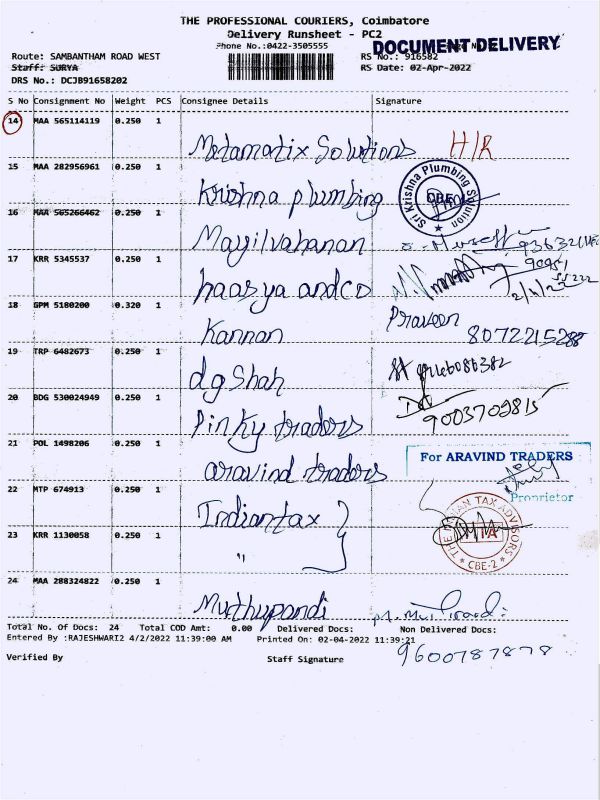 THE PROFESSIONAL COURIERS, Coimbatore
Delivery Runsheet - PC2
Phone No.:0422-3505555
DOCUMENT DELIVERY
Route: SAMBANTHAM ROAD WEST
RS No.: 916582
Staff: SURYA
RS Date: 02-Apr-2022
DRS No.: DCJB91658202
S No Consignment No Weight PCS Consignee Details Signature
14 MAA 565114119 0.250 1
Metamatix Solutions H/R
15 MAA 282956961 0.250 1
Krishna plumbing
Sri Krishna Plumbing Solution
CBE
16 MAA 565266462 0.250 1
Mayilvahanan
17 KRR 5345537 0.250 1
haasya andco
18 GPM 5180200 0.320 1
Kannan
Praveen 8072215288
19 TRP 6482673 0.250 1
dg Shah
20 BDG 530024949 0.250 1
Pinky traders
9003702815
21 POL 1498206 0.250 1
aravind traders
For ARAVIND TRADERS
Proprietor
22 MTP 674913 0.250 1
Indiantax
THE INDIAN TAX ADVISORS
* CBE-2 *
23 KRR 1130058 0.250 1
"
24 MAA 288324822 0.250 1
Muthupandi
Total No. Of Docs: 24 Total COD Amt: 0.00 Delivered Docs: Non Delivered Docs:
Entered By :RAJESHWARI2 4/2/2022 11:39:00 AM Printed On: 02-04-2022 11:39:21
9600787878
Verified By Staff Signature